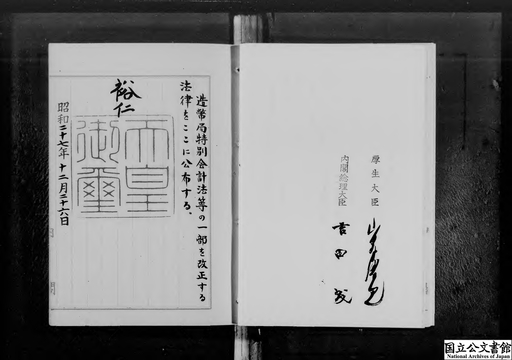 厚生大臣
内閣総理大臣
吉田茂
造幣局特別会計法等の一部を改正する
法律をここに公布する。
裕仁
天皇
御璽
昭和二十七年十二月二十六日
国立公文書館
National Archives of Japan